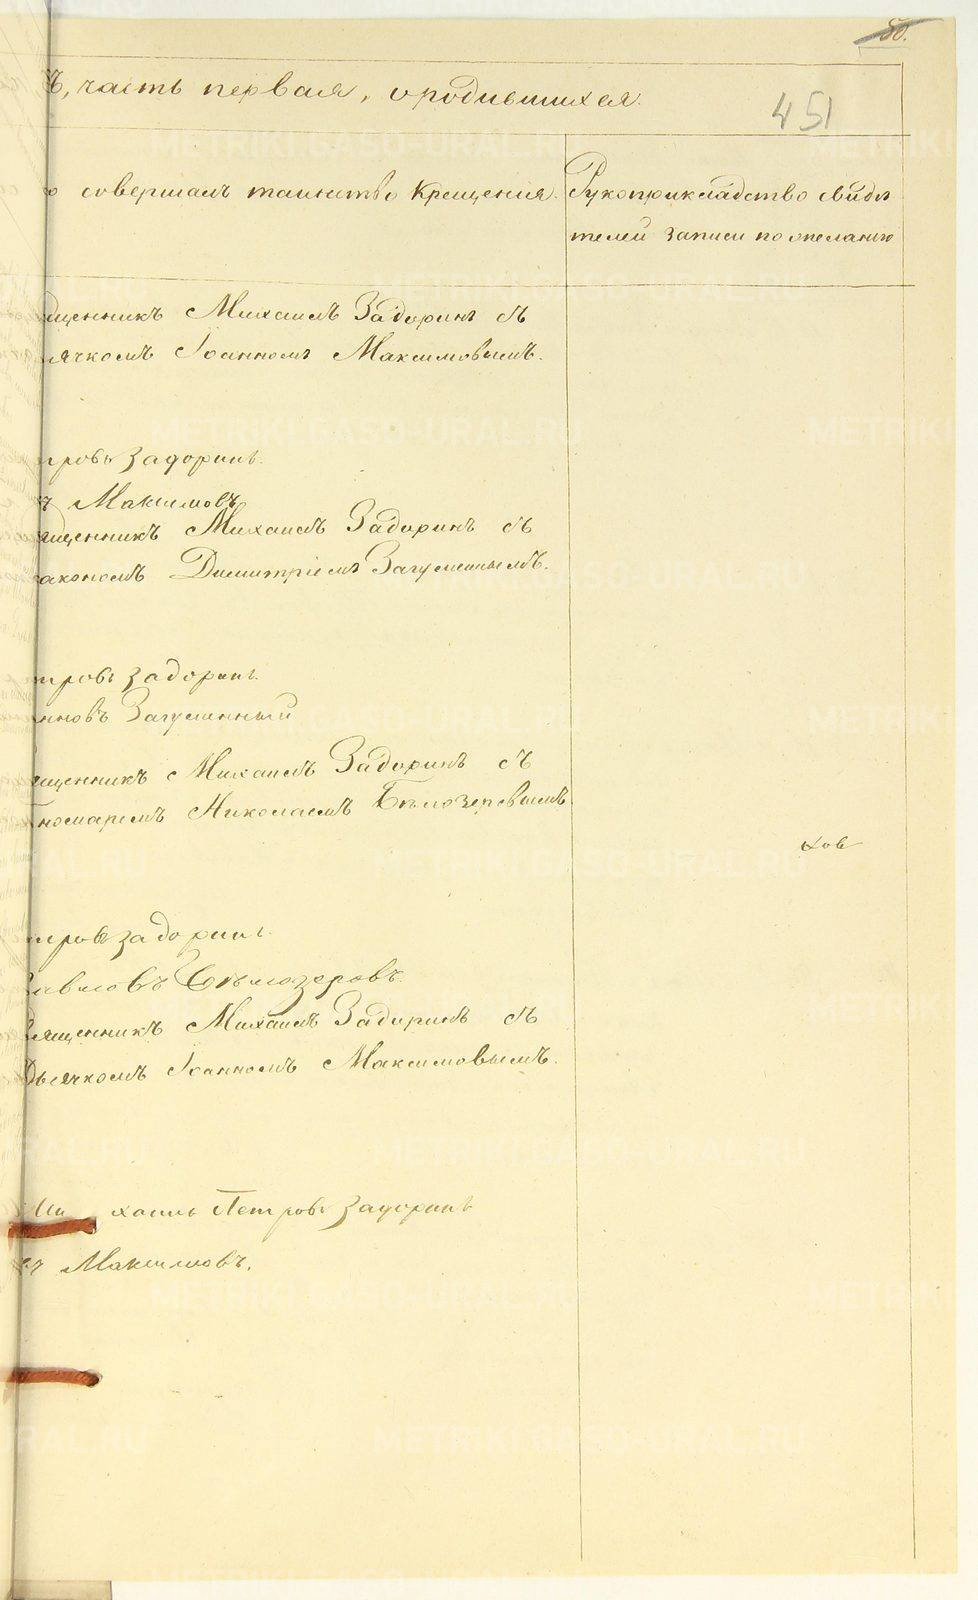 50.
451
ъ, часть первая, о родившихся.
совершалъ таинство Крещенія.
Рукоприкладство свидѣ
телей записи по желанію
щенникъ Михаилъ Задоринъ съ
ячкомъ Іоанномъ Максимовымъ.
тровъ Задоринъ.
Максимовъ
ященникъ Михаилъ Задоринъ съ
акономъ Димитріемъ Загуменнымъ.
тровъ Задоринъ.
нновъ Загуменный
ященникъ Михаилъ Задоринъ съ
номаремъ Николаемъ Бѣлозеровымъ.
ков
тровъ Задоринъ.
авловъ Бѣлозеровъ
вященникъ Михаилъ Задоринъ съ
Дьячкомъ Іоанномъ Максимовымъ.
Ми хаилъ Петровъ Задоринъ
Максимовъ.
METRIKI.GASO-URAL.RU